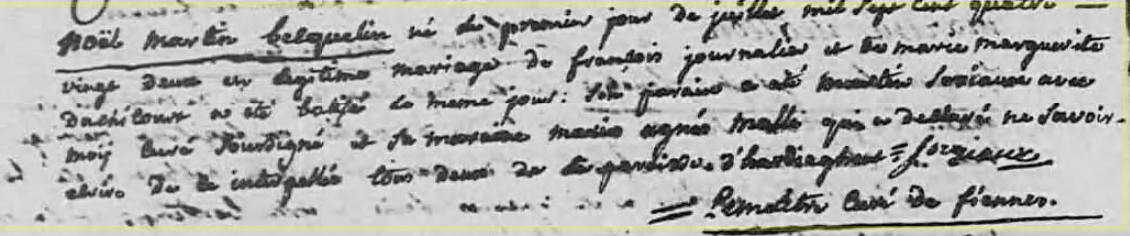 Noël martin belquelin né le premier jour de juillet mil sept cent quatre —
vingt deux en légitime mariage de françois journalier et de marie marguerite
a été batisé le meme jour : son parain a été martin avec
moy curé soussigné et sa maraine marie agnés qui a declaré ne savoir -
ecrire de ce interpellée tous deux de la paroisse d'hardinghent =
= curé de fiennes.